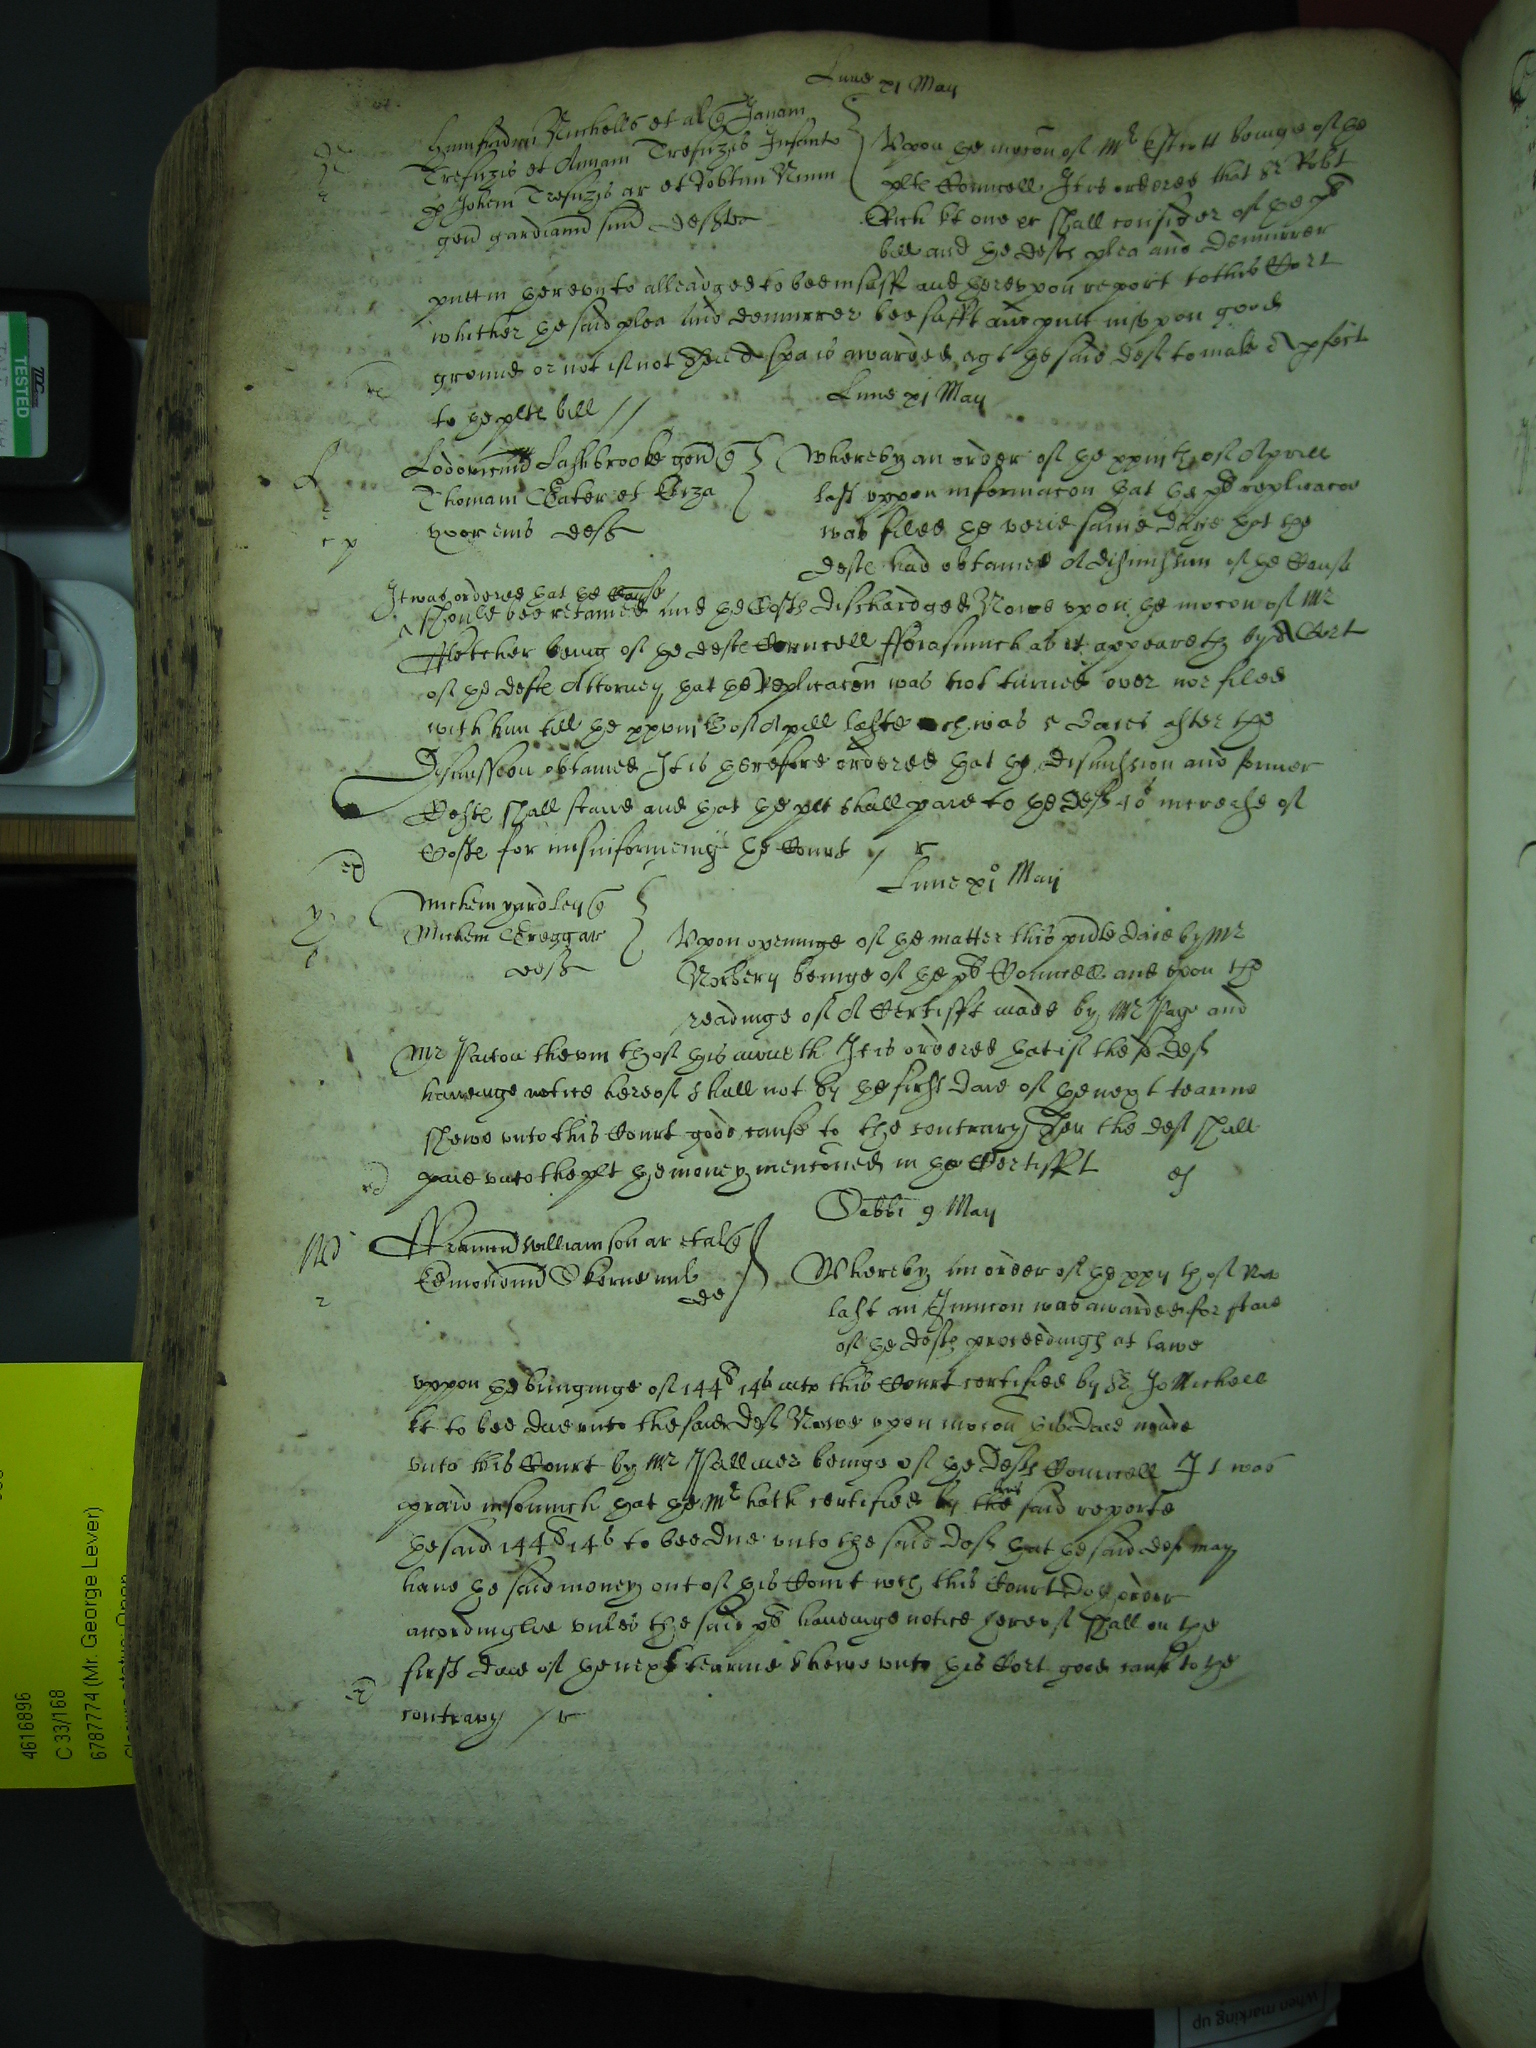 Lune xj May
Humfridum Nicholls et al Janam
Trefuzis et Annam Trefuzis Infants
p Johem Trefuzis ar et Robtum
gen gardianum suu deftes
Upon the mocon of Mr Estcott beinge of the
plts Councell It is ordered that Sr Robt
Rich kt one &c shall consider of the
bill and the defts plea and demurrer
putt in therevnto alleadged to bee insuff and therevpon report to this Cort
whither the said plea and demurrer bee sufft and putt in vpon good
ground or not if not then a spa is awarded agt the said deft to make a pfect
to the plts bill //
Lune xj May
Lodovicum Lashbrooke gen
Thomam et
vxor eius deft
Whereby an order of the xxvith of Aprill
last vppon informacon that the replicacon
was filed the verie same daye that the
defts had obtained a dismission of the Cause
It was ordered that the Cause
should bee retained and the Costs dischardged Nowe vpon the mocon of Mr
Fletcher being of the defts Councell fforasmuch as it appeareth by Cert
of the defts Attorney that the Replicacon was not turned over nor filed
with him till the xxvith of Aprill laste wch was 5 daies after the
Dismission obtained It is therefore ordered that the dismission and former
Costs shall stand and that the plt shall paie to the deft 10s increase of
Costs for misinforminge the Court /
Lune xjo May
Michem yardley
Michem Greggar
deft
Vpon openinge of the matter this pnte daie by Mr
Norbery beinge of the Councell and vpon the
readinge of A Certifft made by Mr Page and
Mr the vith of this moneth It is ordered that if the sd deft
haveinge notice hereof shall not by the first daie of the next tearme
shewe vnto this Court good cause to the contrary Then the deft shall
paie vnto the plt the money mencioned in the Certifft
Sabbi 9 May
Williamson ar et al
Edmondum Skerne mil
de
Whereby an order of the xxjth of No
last an Iniuncon was awarded for staie
of the defts proceedings at lawe
vppon the bringinge of 144l 14s into this Court certified by Sr Jo Michell
kt to bee due vnto the said deft Nowe vpon mocon this daie made
vnto this Court by Mr Pallmer beinge of the defts Councell It was
praid insomuch that the Mr hath certified by the said reporte
the said 144l 14s to bee due vnto the said deft that the said deft may
have the said money out of this Court wch this Court doth order
accordinglie vnles the said haveinge notice hereof shall on the
first daie of the next tearme shewe vnto this Cort good cause to the
contrary /
TESTED
4616896
C 33/168
6787774 (Mr. George Lever)
when marking up